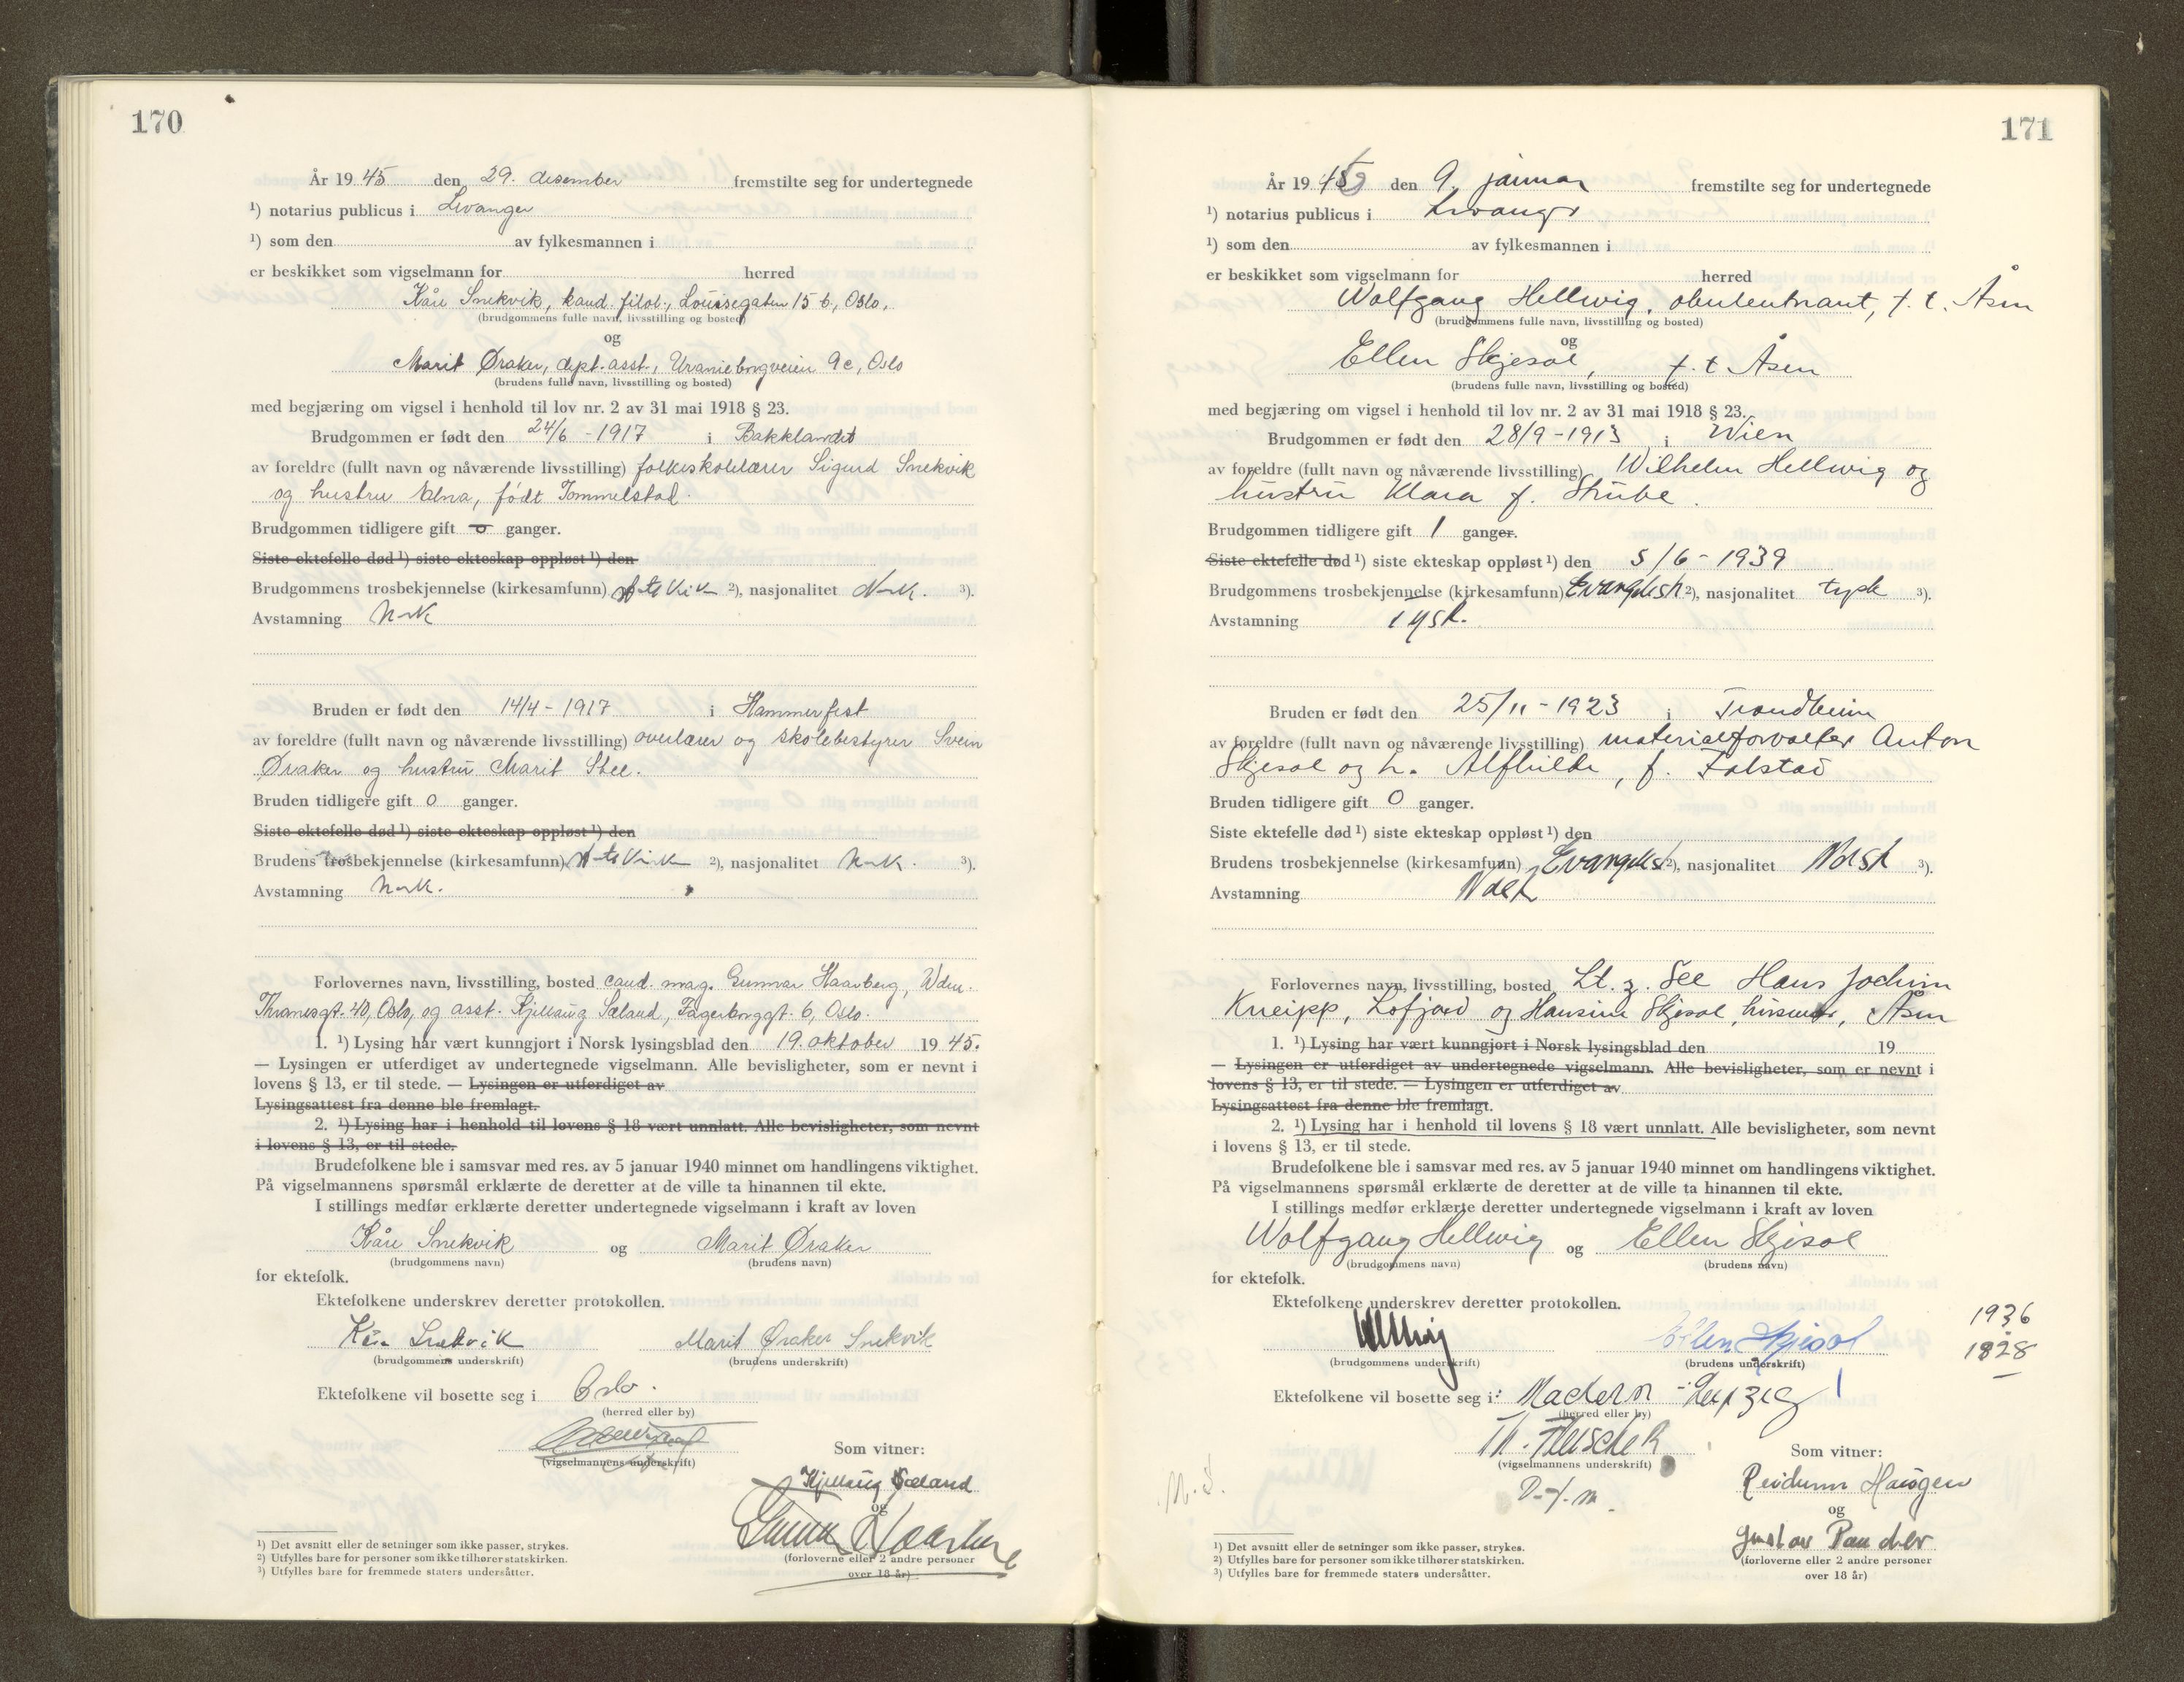 170
År 19 45 den 29. desember fremstilte seg for undertegnede
¹) notarius publicus i Levanger
¹) som den av fylkesmannen i
er beskikket som vigselmann for herred
Kåre Snekvik, kand. filol., Louisegaten 15 b, Oslo.
(brudgommens fulle navn, livsstilling og bosted)
og
Marit Øraker, dept. asst., Uranieborgveien 9c, Oslo
(brudens fulle navn, livsstilling og bosted)
med begjæring om vigsel i henhold til lov nr. 2 av 31 mai 1918 § 23.
Brudgommen er født den 24/6 - 1917 i Bakklandet
av foreldre (fullt navn og nåværende livsstilling) folkeskolelærer Sigurd Snekvik
og hustru Edna, født Tommelstad.
Brudgommen tidligere gift 0 ganger.
Siste ektefelle død ¹) siste ekteskap oppløst ¹) den
Brudgommens trosbekjennelse (kirkesamfunn) ²), nasjonalitet Norsk. ³).
Avstamning Norsk
Bruden er født den 14/4 - 1917 i Hammerfest
av foreldre (fullt navn og nåværende livsstilling) overlærer og skolebestyrer Svein
Øraker og hustru Marit Stee.
Bruden tidligere gift 0 ganger.
Siste ektefelle død ¹) siste ekteskap oppløst ¹) den
Brudens trosbekjennelse (kirkesamfunn) ²), nasjonalitet Norsk. ³).
Avstamning Norsk.
Forlovernes navn, livsstilling, bosted cand. mag. Gunnar Haarberg, Wdm.
Thranesgt. 40, Oslo, og asst. Kjellaug Sæland, Fagerborggt. 6, Oslo.
1. ¹) Lysing har vært kunngjort i Norsk lysingsblad den 19. oktober 19 45.
— Lysingen er utferdiget av undertegnede vigselmann. Alle bevisligheter, som er nevnt i
lovens § 13, er til stede. — Lysingen er utferdiget av
Lysingsattest fra denne ble fremlagt.
2. ¹) Lysing har i henhold til lovens § 18 vært unnlatt. Alle bevisligheter, som nevnt
i lovens § 13, er til stede.
Brudefolkene ble i samsvar med res. av 5 januar 1940 minnet om handlingens viktighet.
På vigselmannens spørsmål erklærte de deretter at de ville ta hinannen til ekte.
I stillings medfør erklærte deretter undertegnede vigselmann i kraft av loven
Kåre Snekvik og Marit Øraker
(brudgommens navn) (brudens navn)
for ektefolk.
Ektefolkene underskrev deretter protokollen.
Kåre Snekvik Marit Øraker Snekvik
(brudgommens underskrift) (brudens underskrift)
Ektefolkene vil bosette seg i Oslo.
(herred eller by)
(vigselmannens underskrift)
Som vitner:
Kjellaug Sæland
og
Gunnar Haarberg
(forloverne eller 2 andre personer
over 18 år)
¹) Det avsnitt eller de setninger som ikke passer, strykes.
²) Utfylles bare for personer som ikke tilhører statskirken.
³) Utfylles bare for fremmede staters undersåtter.
171
År 19 45 den 9. januar fremstilte seg for undertegnede
¹) notarius publicus i Levanger
¹) som den av fylkesmannen i
er beskikket som vigselmann for herred
Wolfgang Hellwig, oberleutnant, f. t. Åsen
(brudgommens fulle navn, livsstilling og bosted)
og
Ellen Skjesol, f. t Åsen
(brudens fulle navn, livsstilling og bosted)
med begjæring om vigsel i henhold til lov nr. 2 av 31 mai 1918 § 23.
Brudgommen er født den 28/9 - 1913 i Wien
av foreldre (fullt navn og nåværende livsstilling) Wilhelm Hellwig og
hustru Klara f. Stube.
Brudgommen tidligere gift 1 ganger.
Siste ektefelle død ¹) siste ekteskap oppløst ¹) den 5/6 - 1939
Brudgommens trosbekjennelse (kirkesamfunn) Evangelisk ²), nasjonalitet tysk ³).
Avstamning tysk.
Bruden er født den 25/11 - 1923 i Trondheim
av foreldre (fullt navn og nåværende livsstilling) materialforvalter Anton
Skjesol og h. Alfhilde, f. Falstad
Bruden tidligere gift 0 ganger.
Siste ektefelle død ¹) siste ekteskap oppløst ¹) den
Brudens trosbekjennelse (kirkesamfunn) Evangelisk ²), nasjonalitet Norsk ³).
Avstamning Norsk
Forlovernes navn, livsstilling, bosted Lt. z. See Hans Jochim
Kneipp, Lofjord og Hansine Skjesol, husmor, Åsen
1. ¹) Lysing har vært kunngjort i Norsk lysingsblad den 19
— Lysingen er utferdiget av undertegnede vigselmann. Alle bevisligheter, som er nevnt i
lovens § 13, er til stede. — Lysingen er utferdiget av
Lysingsattest fra denne ble fremlagt.
2. ¹) Lysing har i henhold til lovens § 18 vært unnlatt. Alle bevisligheter, som nevnt
i lovens § 13, er til stede.
Brudefolkene ble i samsvar med res. av 5 januar 1940 minnet om handlingens viktighet.
På vigselmannens spørsmål erklærte de deretter at de ville ta hinannen til ekte.
I stillings medfør erklærte deretter undertegnede vigselmann i kraft av loven
Wolfgang Hellwig og Ellen Skjesol
(brudgommens navn) (brudens navn)
for ektefolk.
Ektefolkene underskrev deretter protokollen.
Hellwig Ellen Skjesol
(brudgommens underskrift) (brudens underskrift)
1936
1928
Ektefolkene vil bosette seg i: Machern - Leipzig
(herred eller by)
Th. Fleischer
(vigselmannens underskrift)
D. f. m.
M. S.
Som vitner:
Reidunn Haugen
og
Gustav Pandler
(forloverne eller 2 andre personer
over 18 år)
¹) Det avsnitt eller de setninger som ikke passer, strykes.
²) Utfylles bare for personer som ikke tilhører statskirken.
³) Utfylles bare for fremmede staters undersåtter.